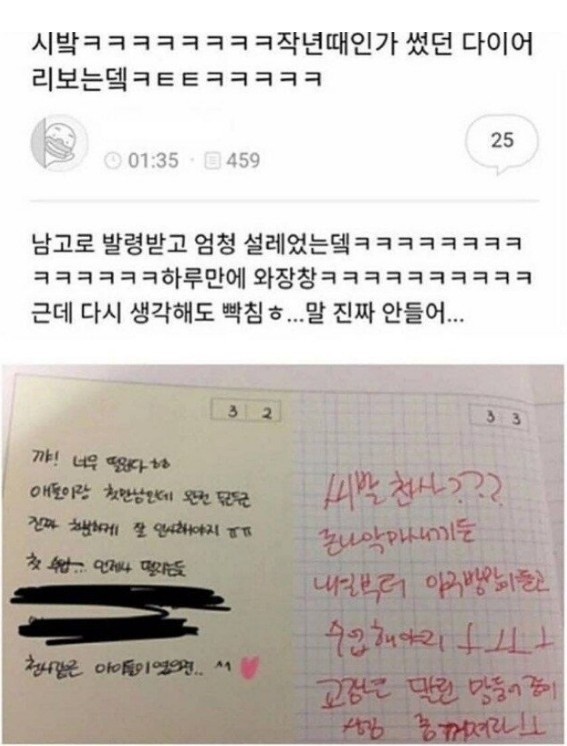 시밬ㅋㅋㅋㅋㅋㅋㅋㅋ작년때인가 썼던 다이어
리보는뎈ㅋㅌㅌㅋㅋㅋㅋㅋ
01:35 · 459
25
남고로 발령받고 엄청 설레었는뎈ㅋㅋㅋㅋㅋㅋㅋ
ㅋㅋㅋㅋㅋㅋ하루만에 와장창ㅋㅋㅋㅋㅋㅋㅋㅋㅋㅋ
근데 다시 생각해도 빡침ㅎ...말 진짜 안들어...
3 2
꺄! 너무 떨린다 ㅎㅎ
애들이랑 첫만남인데 완전 두근두근
진짜 잘 인사해야지 ㅠㅠ
첫 수업... 언제나 떨리는듯
천사같은 아이들이었으면.. ^^ ♥
3 3
씨발 천사???
존나 악마새끼들
내일부터 야구방망이들고
수업해야리 ㅗㅜㅜㅗ
고장난 딸린 망둥이 종이